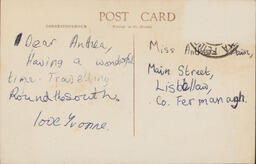 POST CARD
CORRESPONDENCE
Dear Anthea,
Having a wonderful
time. Travelling
Round the south.
love Yvonne.
Miss
Main Street,
Lisbellaw,
Co. Fermanagh